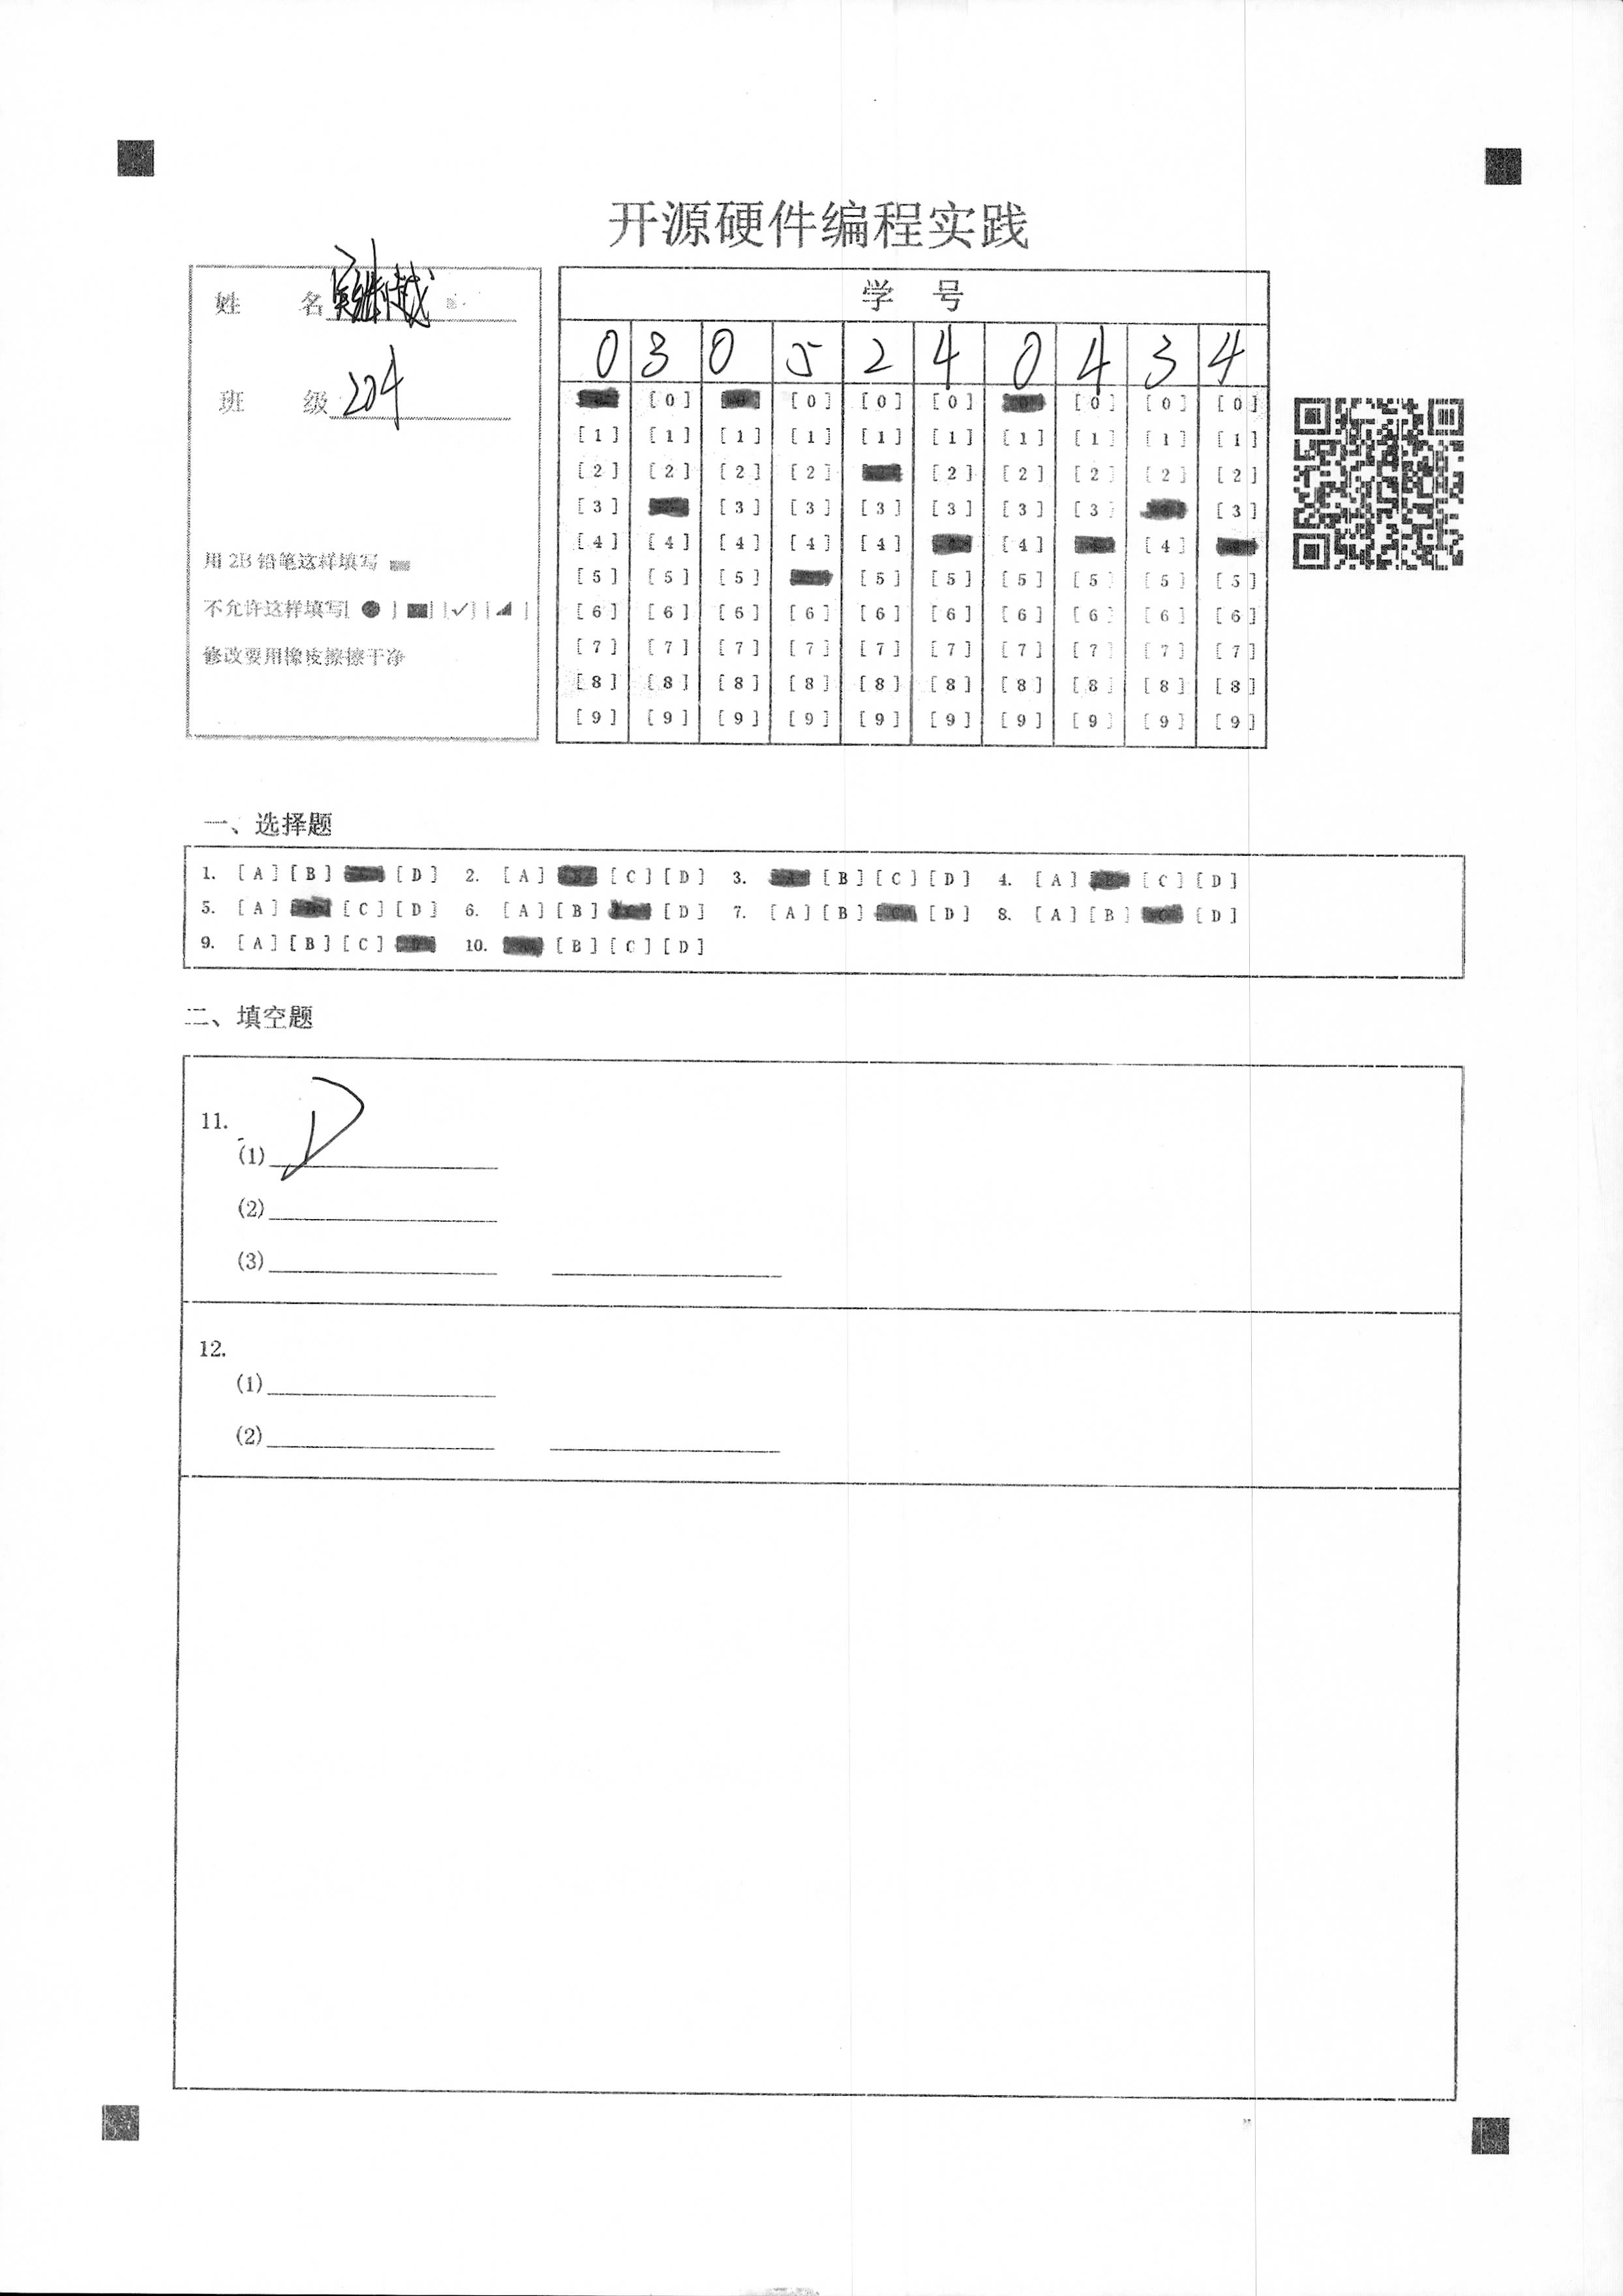 开源硬件编程实践
姓 名
班 级 204
用 2B 铅笔这样填写
不允许这样填写[ ● ] [■] [✓] [◢]
修改要用橡皮擦擦干净
学 号
0 3 0 5 2 4 0 4 3 4
[0] [0] [0] [0] [0] [0] [0]
[1] [1] [1] [1] [1] [1] [1] [1] [1] [1]
[2] [2] [2] [2] [2] [2] [2] [2] [2]
[3] [3] [3] [3] [3] [3] [3] [3]
[4] [4] [4] [4] [4] [4] [4]
[5] [5] [5] [5] [5] [5] [5] [5] [5]
[6] [6] [6] [6] [6] [6] [6] [6] [6] [6]
[7] [7] [7] [7] [7] [7] [7] [7] [7] [7]
[8] [8] [8] [8] [8] [8] [8] [8] [8] [8]
[9] [9] [9] [9] [9] [9] [9] [9] [9] [9]
一、选择题
1. [A] [B] [D] 2. [A] [C] [D] 3. [B] [C] [D] 4. [A] [C] [D]
5. [A] [C] [D] 6. [A] [B] [D] 7. [A] [B] [D] 8. [A] [B] [D]
9. [A] [B] [C] 10. [B] [C] [D]
二、填空题
11.
(1) D
(2)
(3)
12.
(1)
(2)